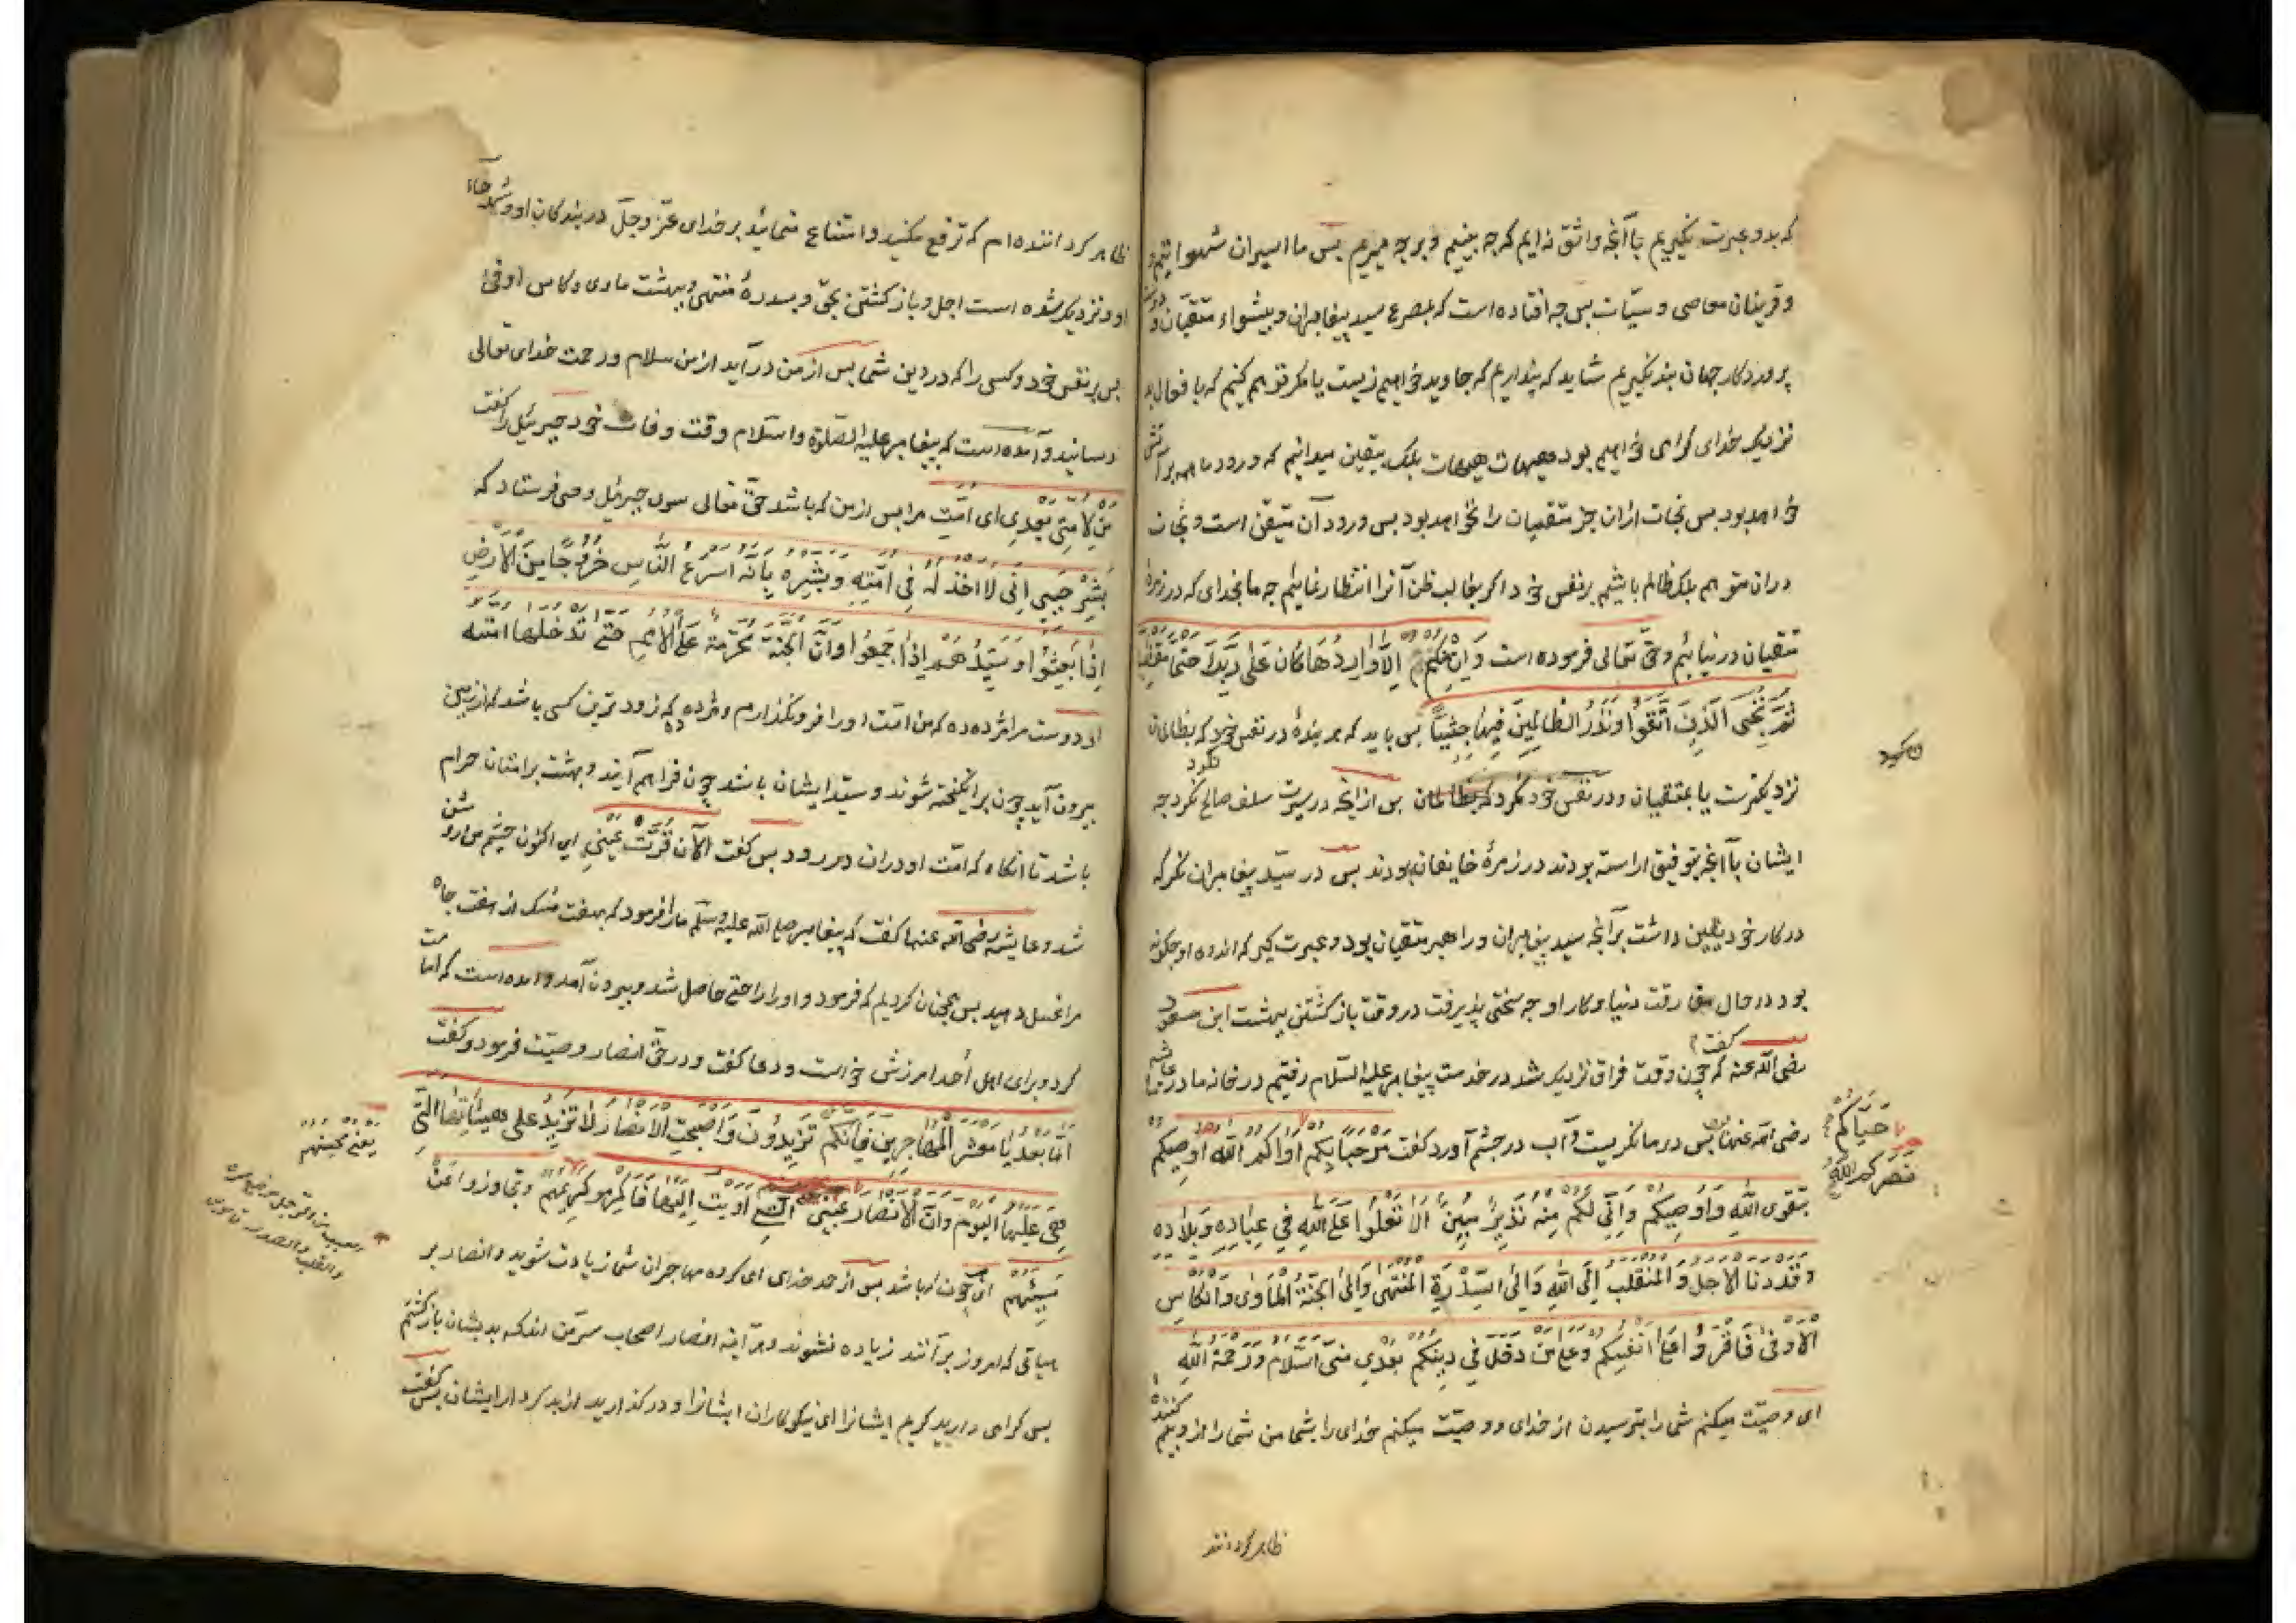 که بدو عبرت نکیریم با آنچه واثق نه ایم که چه بینیم و بر چه میریم بس ما اسیران شهواتیم
و قرینان معاصی و سیّات بس چه افتاده است که بمصرع سید بیغامبران و بیشواء متقیان و دوست
بروردکار جهان بند نکیریم شاید که بنداریم که جاوید خواهیم زیست یا مکر توهم کنیم که با افعال بد
نزدیک خدای کرامی خواهیم بود هیهات هیهات بلک بیقین میدانیم که ورود ما همه بر آتش
خواهد بود بس نجات ازان جز متقیان را نخواهد بود بس ورود آن متیقن است و نجات
دران متوهم بلک ظالم باشیم بر نفس خود اکر بغالب ظن آنرا انتظار نمائیم چه ما بخدای که در زمرهٔ
متقیان در نیائیم و حقّ تعالی فرموده است وَاِنْ مِنْكُمْ اِلَّا وَارِدُهَا كَانَ عَلٰى رَبِّكَ حَتْمًا مَقْضِيًّا
ثُمَّ نُنَجِّى الَّذِينَ اتَّقَوْا وَنَذَرُ الظَّالِمِينَ فِيهَا جِثِيًّا بس باید که هر بندهٔ در نفس خود نکرد که بظالمان
نزدیکترست یا بمتقیان و در نفس خود نکرد که بظالمان بس ازانچه در سیرت سلف صالح نکرد چه
ایشان با آنچه بتوفیق اراسته بودند در زمرهٔ خایفان بودند بس در سیّد بیغامبران نکر که
در کار خود یقین داشت بر آنچه سید بیغامبران و راهبر متقیان بود و عبرت کیر که اندوه او چکونه
بود در حال مفارقت دنیا و کار او چه سختی بذیرفت در وقت باز کشتن ببهشت ابن مسعود
رضی الله عنه کفت که چون وقت فراق نزدیک شد در خدمت بیغامبر علیه السّلام رفتیم در خانه مادر ما عایشه
رضی الله عنها بس در ما نکریست و آب در چشم آورد کفت مَرْحَبًا بِكُمْ اٰوَاكُمُ اللّٰه اُوصِيكُم
حَيَّاكُمُ
نَصَرَكُمُ اللّٰه
بِتَقْوَى اللّٰهِ وَاُوصِي بِكُمْ وَاِنِّي لَكُمْ مِنْهُ نَذِيرٌ مُبِينٌ اَلَّا تَعْلُوا عَلَى اللّٰهِ فِي عِبَادِهِ وَبِلَادِه
وَقَدْ دَنَا الْاَجَلُ وَالْمُنْقَلَبُ اِلَى اللّٰهِ وَاِلَى السِّدْرَةِ الْمُنْتَهٰى وَاِلَى الْجَنَّةِ الْمَأْوٰى وَالْكَاسِ
الْاَوْفٰى فَاقْرَؤُا عَلٰى اَنْفُسِكُمْ وَعَلٰى مَنْ دَخَلَ فِي دِينِكُمْ بَعْدِي مِنِّي السَّلَامَ وَرَحْمَةَ اللّٰهِ
ای وصیّت میکنم شما را بترسیدن از خدای و وصیّت میکنم خدای را بشما من شما را ازو بیم کننده
ظاهر کرداننده
ظاهر کرداننده ام که ترفع مکنید و امتناع منمائید بر خدای عزّ و جلّ در بندکان او و شهرهاء
او و نزدیک شده است اجل و باز کشتن بحق و بسدرهٔ منتهی و ببهشت ماوی و کاس اوفی
بس بر نفس خود و کسی را که در دین شما بس از من در آید از من سلام و رحمت خدای تعالی
رسانید و آمده است که بیغامبر علیه الصّلوة و السّلام وقت وفات خود جبرئیل را کفت
مَنْ لِاُمَّتِي بَعْدِي ای امّت مرا بس از من که باشد حقّ تعالی سوی جبرئیل وحی فرستاد که
بَشِّرْ حَبِيبِي اَنِّي لَا اَخْذُلُهُ فِي اُمَّتِهِ وَبَشِّرْهُ بِاَنَّهُ اَسْرَعُ النَّاسِ خُرُوجًا مِنَ الْاَرْضِ
اِذَا بُعِثُوا وَسَيِّدُهُمْ اِذَا جُمِعُوا وَاَنَّ الْجَنَّةَ مُحَرَّمَةٌ عَلَى الْاُمَمِ حَتّٰى تَدْخُلَهَا اُمَّتُه
ای دوست مرا مژده ده که من امّت او را فرو نکذارم و مژده ده که زود ترین کسی باشد که از زمین
بیرون آید چون برانکیخته شوند و سید ایشان باشد چون فراهم آیند و بهشت بر امتان حرام
باشد تا انکاه که امّت او دران در رود بس کفت اَلْآنَ قَرَّتْ عَيْنِي ای اکنون چشم من روشن
شد و عایشه رضی الله عنها کفت که بیغامبر صلی الله علیه وسلّم ما را فرمود که بهفت مشک از هفت چاه
مرا غسل دهید بس همچنان کردیم که فرمود و او را راحتی حاصل شد و بیرون آمد و امده است که امامت
کرد و برای اهل اُحد امرزش خواست و دعا کفت و در حقّ انصار وصیّت فرمود و کفت
اَمَّا بَعْدُ يَا مَعْشَرَ الْمُهَاجِرِينَ فَاِنَّكُمْ تَزِيدُونَ وَاَصْبَحَتِ الْاَنْصَارُ لَا تَزِيدُ عَلٰى هَيْئَاتِهَا الَّتِي
هِيَ عَلَيْهَا الْيَوْمَ وَاِنَّ الْاَنْصَارَ عَيْبَتِي الَّتِي اَوَيْتُ اِلَيْهَا فَاَكْرِمُوا كَرِيمَهُمْ وَتَجَاوَزُوا عَنْ
يَعْنِي مُحْسِنَهُمْ
مُسِيئِهِمْ ای چون باشد بس از حمد خدای ای کروه مهاجران شما زیادت شوید و انصار بر
هیاتی که امروز بر آنند زیاده نشوند و هر آینه انصار اصحاب سرّ من اند که بدیشان باز کشتم
بس کرامی دارید کریم ایشانرا ای نیکوکاران ایشانرا و در کذارید از بدکردار ایشان بس کفت